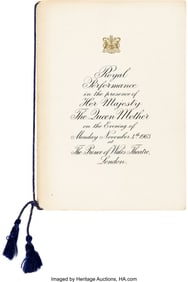 Royal
Performance
in the presence of
Her Majesty
The Queen Mother
on the Evening of
Monday November 4th 1963
at
The Prince of Wales Theatre,
London.
Imaged by Heritage Auctions, HA.com